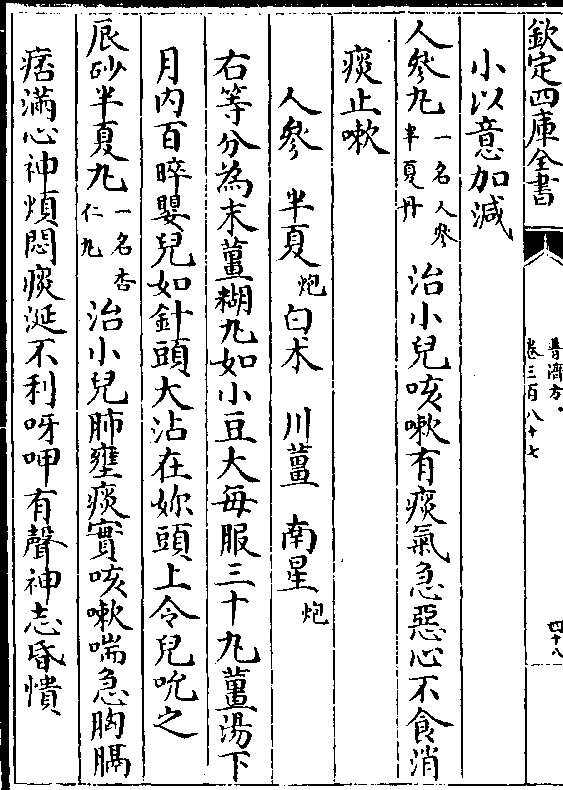 欽定四庫全書
普濟方
卷三百八十七
四十八
小以意加減
人參丸一名人參半夏丹 治小兒咳嗽有痰氣急惡心不食消
痰止嗽
人參 半夏炮 白术 川薑 南星炮
右等分為末薑糊丸如小豆大每服三十丸薑湯下
月內百晬嬰兒如針頭大沾在妳頭上令兒吮之
辰砂半夏丸一名杏仁丸 治小兒肺壅痰實咳嗽喘急胸膈
痞滿心神煩悶痰涎不利呀呷有聲神志昏憒